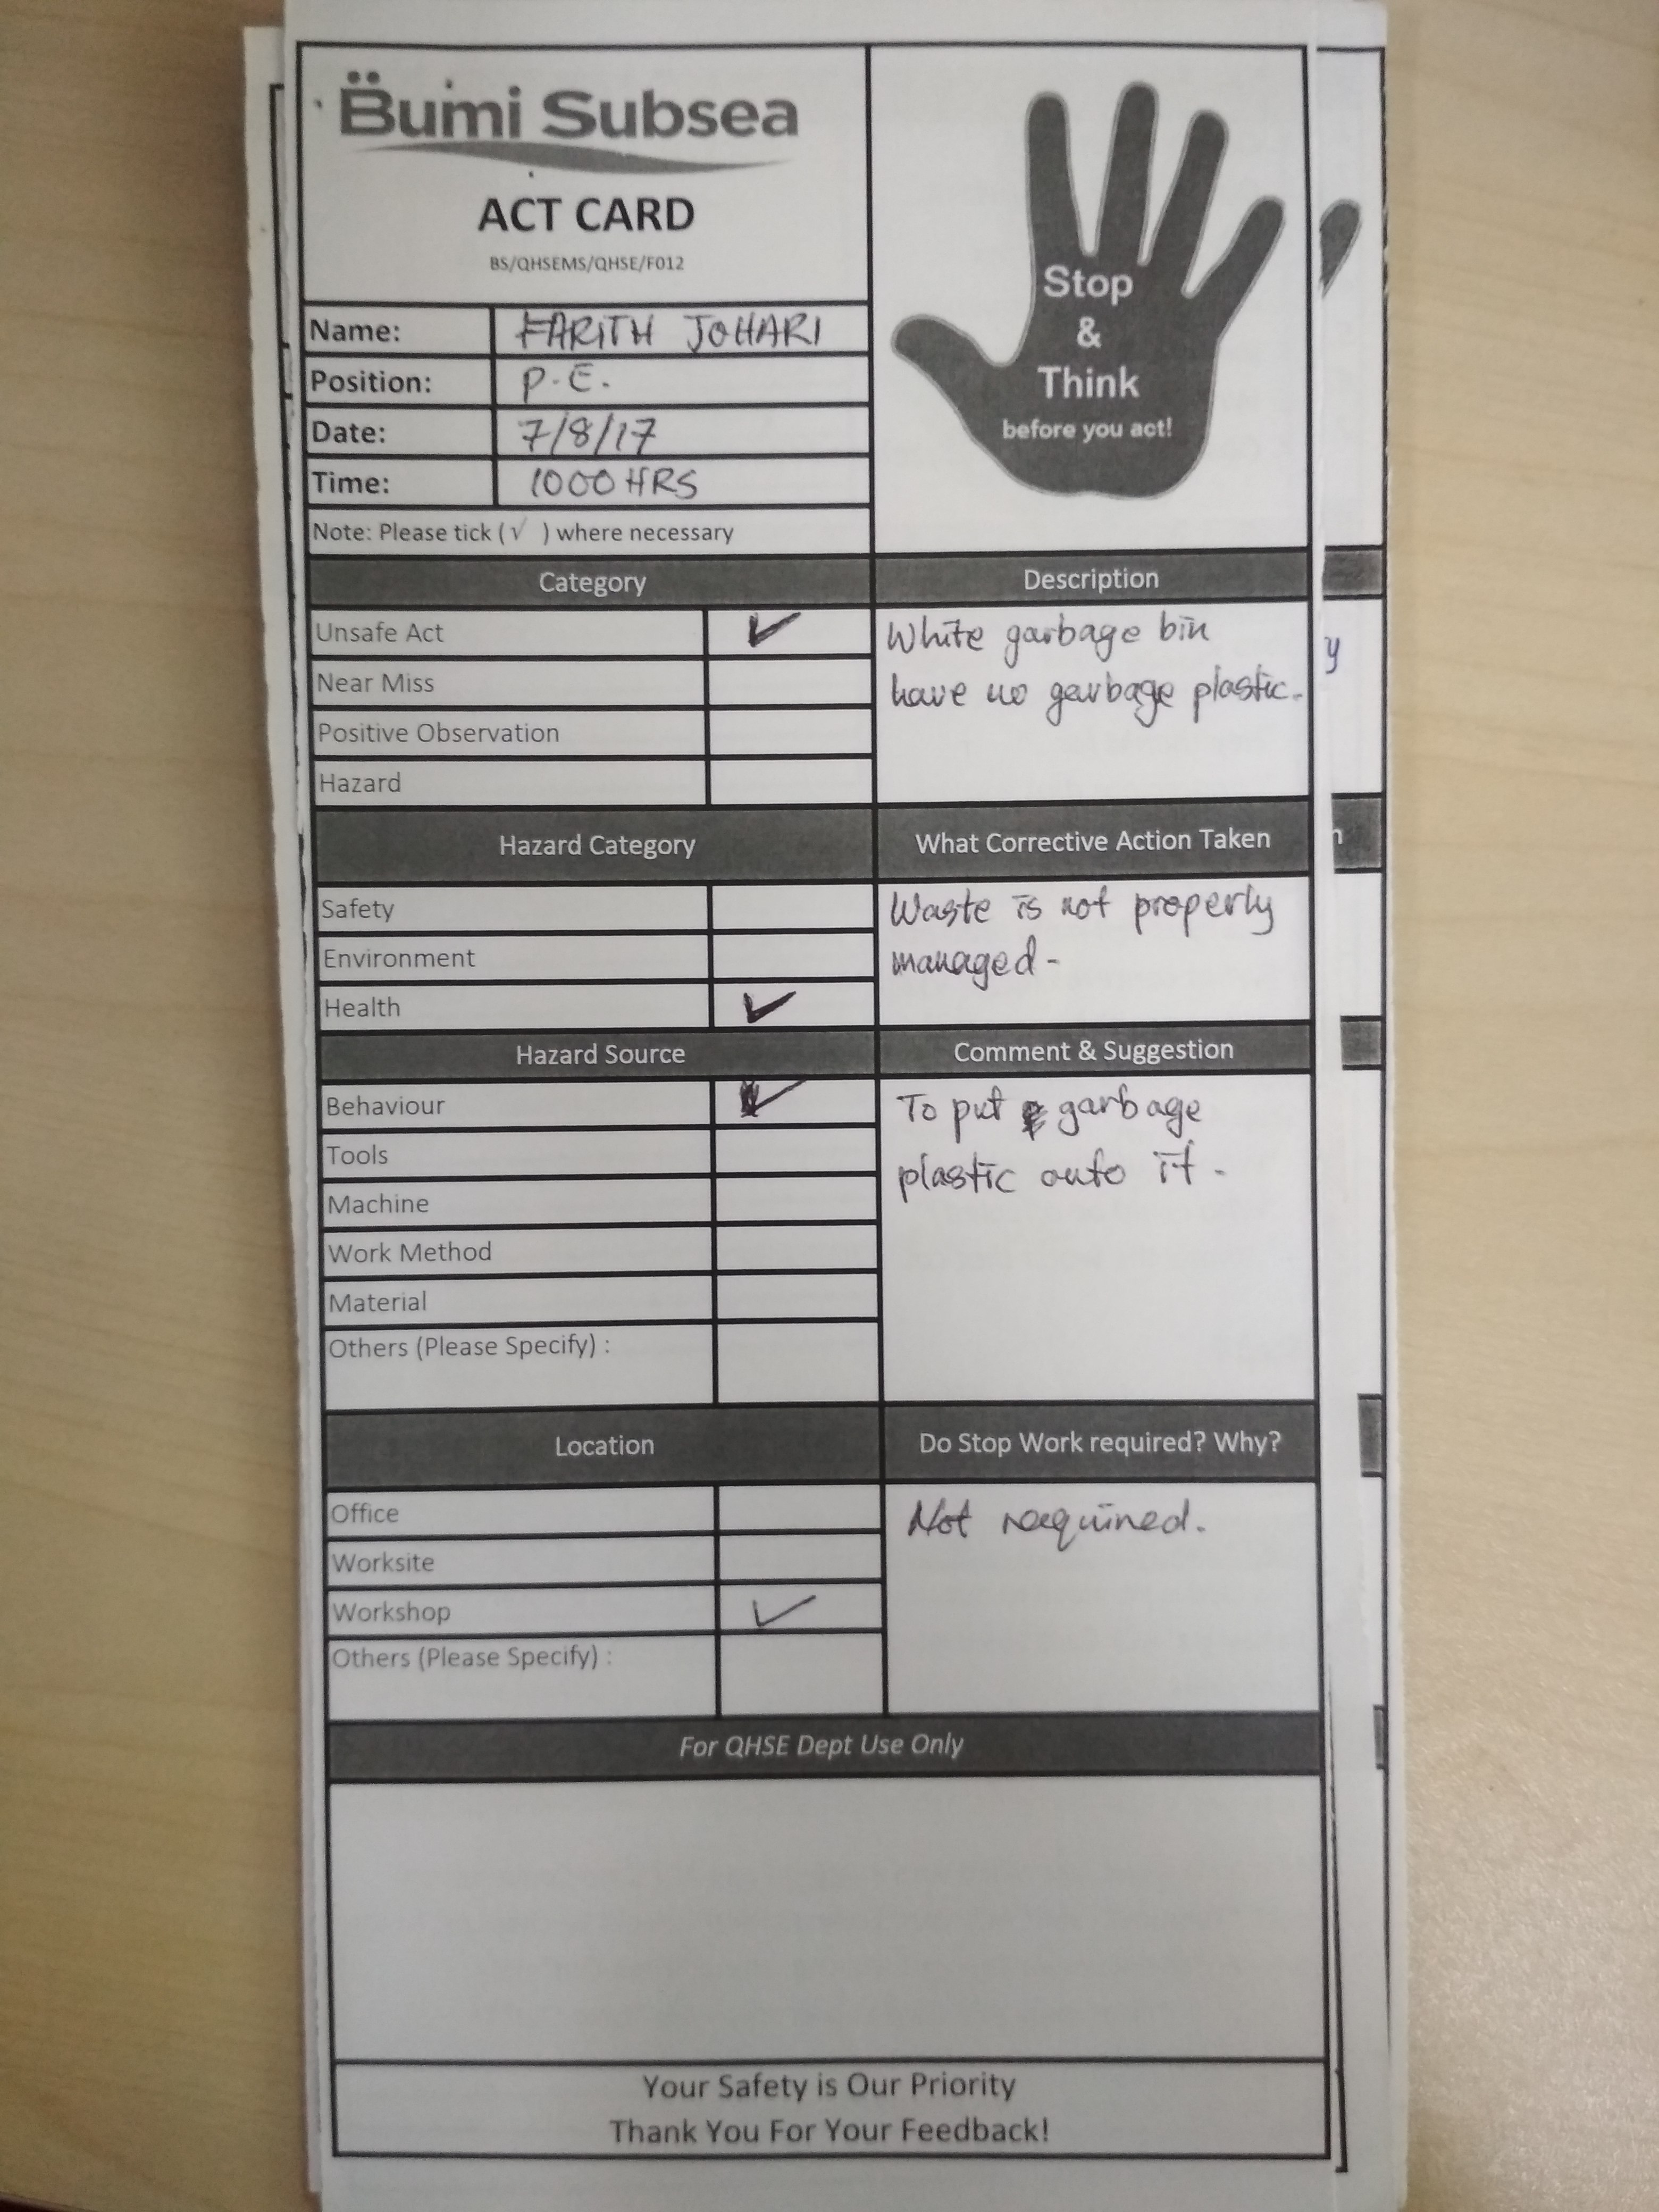 Bumi Subsea
ACT CARD
BS/QHSEMS/QHSE/F012
Stop
&
Think
before you act!
Name: FARITH JOHARI
Position: P.E.
Date: 7/8/17
Time: 1000 HRS
Note: Please tick (√ ) where necessary
Category
Unsafe Act ✓
Near Miss
Positive Observation
Hazard
Description
White garbage bin
have no garbage plastic.
Hazard Category
Safety
Environment
Health ✓
What Corrective Action Taken
Waste is not properly
managed -
Hazard Source
Behaviour ✓
Tools
Machine
Work Method
Material
Others (Please Specify) :
Comment & Suggestion
To put garbage
plastic onto it -
Location
Office
Worksite
Workshop ✓
Others (Please Specify) :
Do Stop Work required? Why?
Not required.
For QHSE Dept Use Only
Your Safety is Our Priority
Thank You For Your Feedback!
y
n